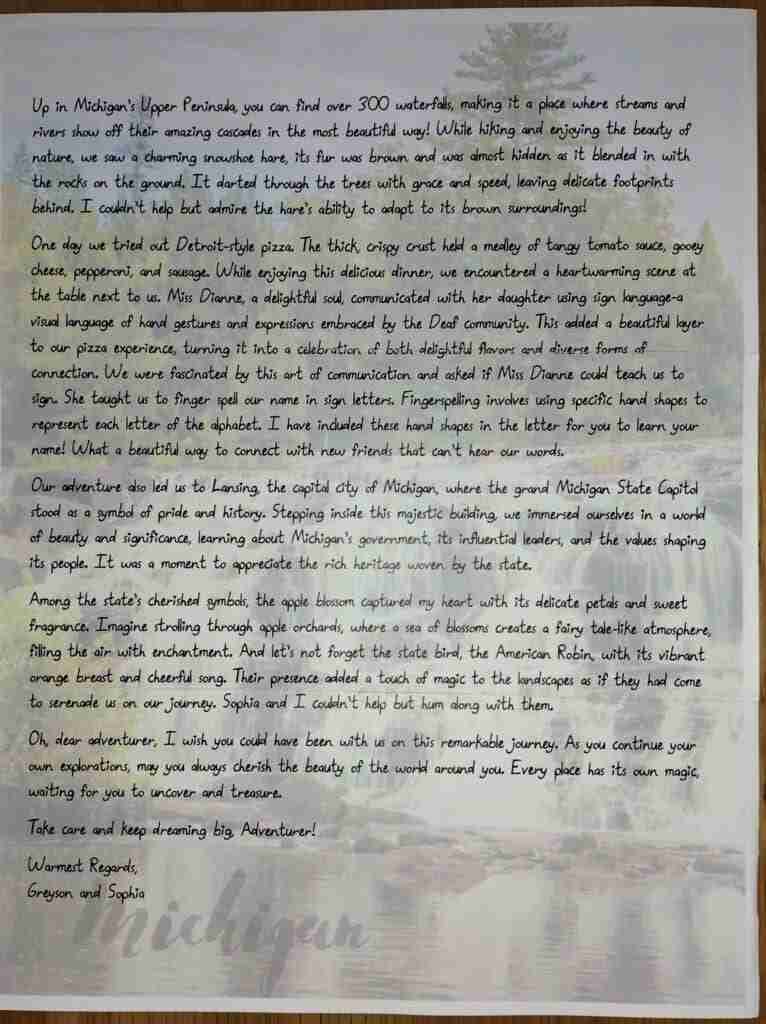 Up in Michigan's Upper Peninsula, you can find over 300 waterfalls, making it a place where streams and
rivers show off their amazing cascades in the most beautiful way! While hiking and enjoying the beauty of
nature, we saw a charming snowshoe hare, its fur was brown and was almost hidden as it blended in with
the rocks on the ground. It darted through the trees with grace and speed, leaving delicate footprints
behind. I couldn't help but admire the hare's ability to adapt to its brown surroundings!
One day we tried out Detroit-style pizza. The thick, crispy crust held a medley of tangy tomato sauce, gooey
cheese, pepperoni, and sausage. While enjoying this delicious dinner, we encountered a heartwarming scene at
the table next to us. Miss Dianne, a delightful soul, communicated with her daughter using sign language-a
visual language of hand gestures and expressions embraced by the Deaf community. This added a beautiful layer
to our pizza experience, turning it into a celebration of both delightful flavors and diverse forms of
connection. We were fascinated by this art of communication and asked if Miss Dianne could teach us to
sign. She taught us to finger spell our name in sign letters. Fingerspelling involves using specific hand shapes to
represent each letter of the alphabet. I have included these hand shapes in the letter for you to learn your
name! What a beautiful way to connect with new friends that can't hear our words.
Our adventure also led us to Lansing, the capital city of Michigan, where the grand Michigan State Capitol
stood as a symbol of pride and history. Stepping inside this majestic building, we immersed ourselves in a world
of beauty and significance, learning about Michigan's government, its influential leaders, and the values shaping
its people. It was a moment to appreciate the rich heritage woven by the state.
Among the state's cherished symbols, the apple blossom captured my heart with its delicate petals and sweet
fragrance. Imagine strolling through apple orchards, where a sea of blossoms creates a fairy tale-like atmosphere,
filling the air with enchantment. And let's not forget the state bird, the American Robin, with its vibrant
orange breast and cheerful song. Their presence added a touch of magic to the landscapes as if they had come
to serenade us on our journey. Sophia and I couldn't help but hum along with them.
Oh, dear adventurer, I wish you could have been with us on this remarkable journey. As you continue your
own explorations, may you always cherish the beauty of the world around you. Every place has its own magic,
waiting for you to uncover and treasure.
Take care and keep dreaming big, Adventurer!
Warmest Regards,
Greyson and Sophia
michigan